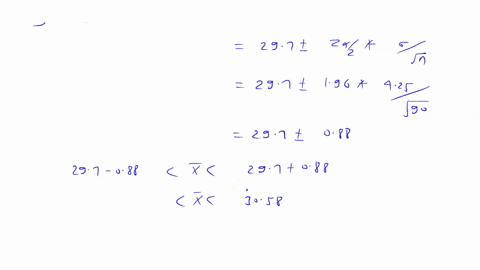 = 29.7 ± Zα/2 * σ/√n
= 29.7 ± 1.96 * 4.25/√90
= 29.7 ± 0.88
29.7 - 0.88 < X̄ < 29.7 + 0.88
< X̄ < 30.58